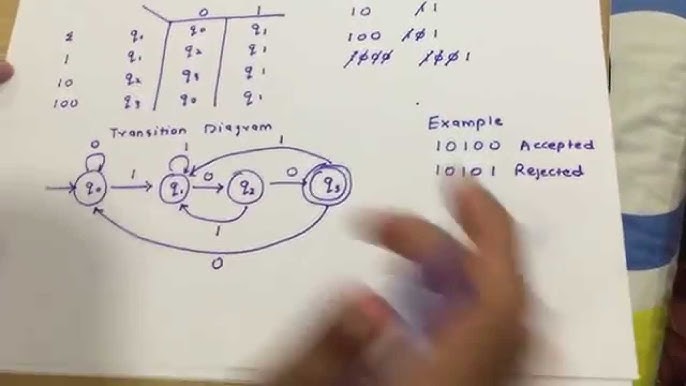 0 1
ε q₀ q₀ q₁
1 q₁ q₂ q₁
10 q₂ q₃ q₁
100 q₃ q₀ q₁
10 1
100 01
1
Transition Diagram
0 1 1
q₀ 1 q₁ 0 q₂ 0 q₃
1
0
Example
10100 Accepted
10101 Rejected